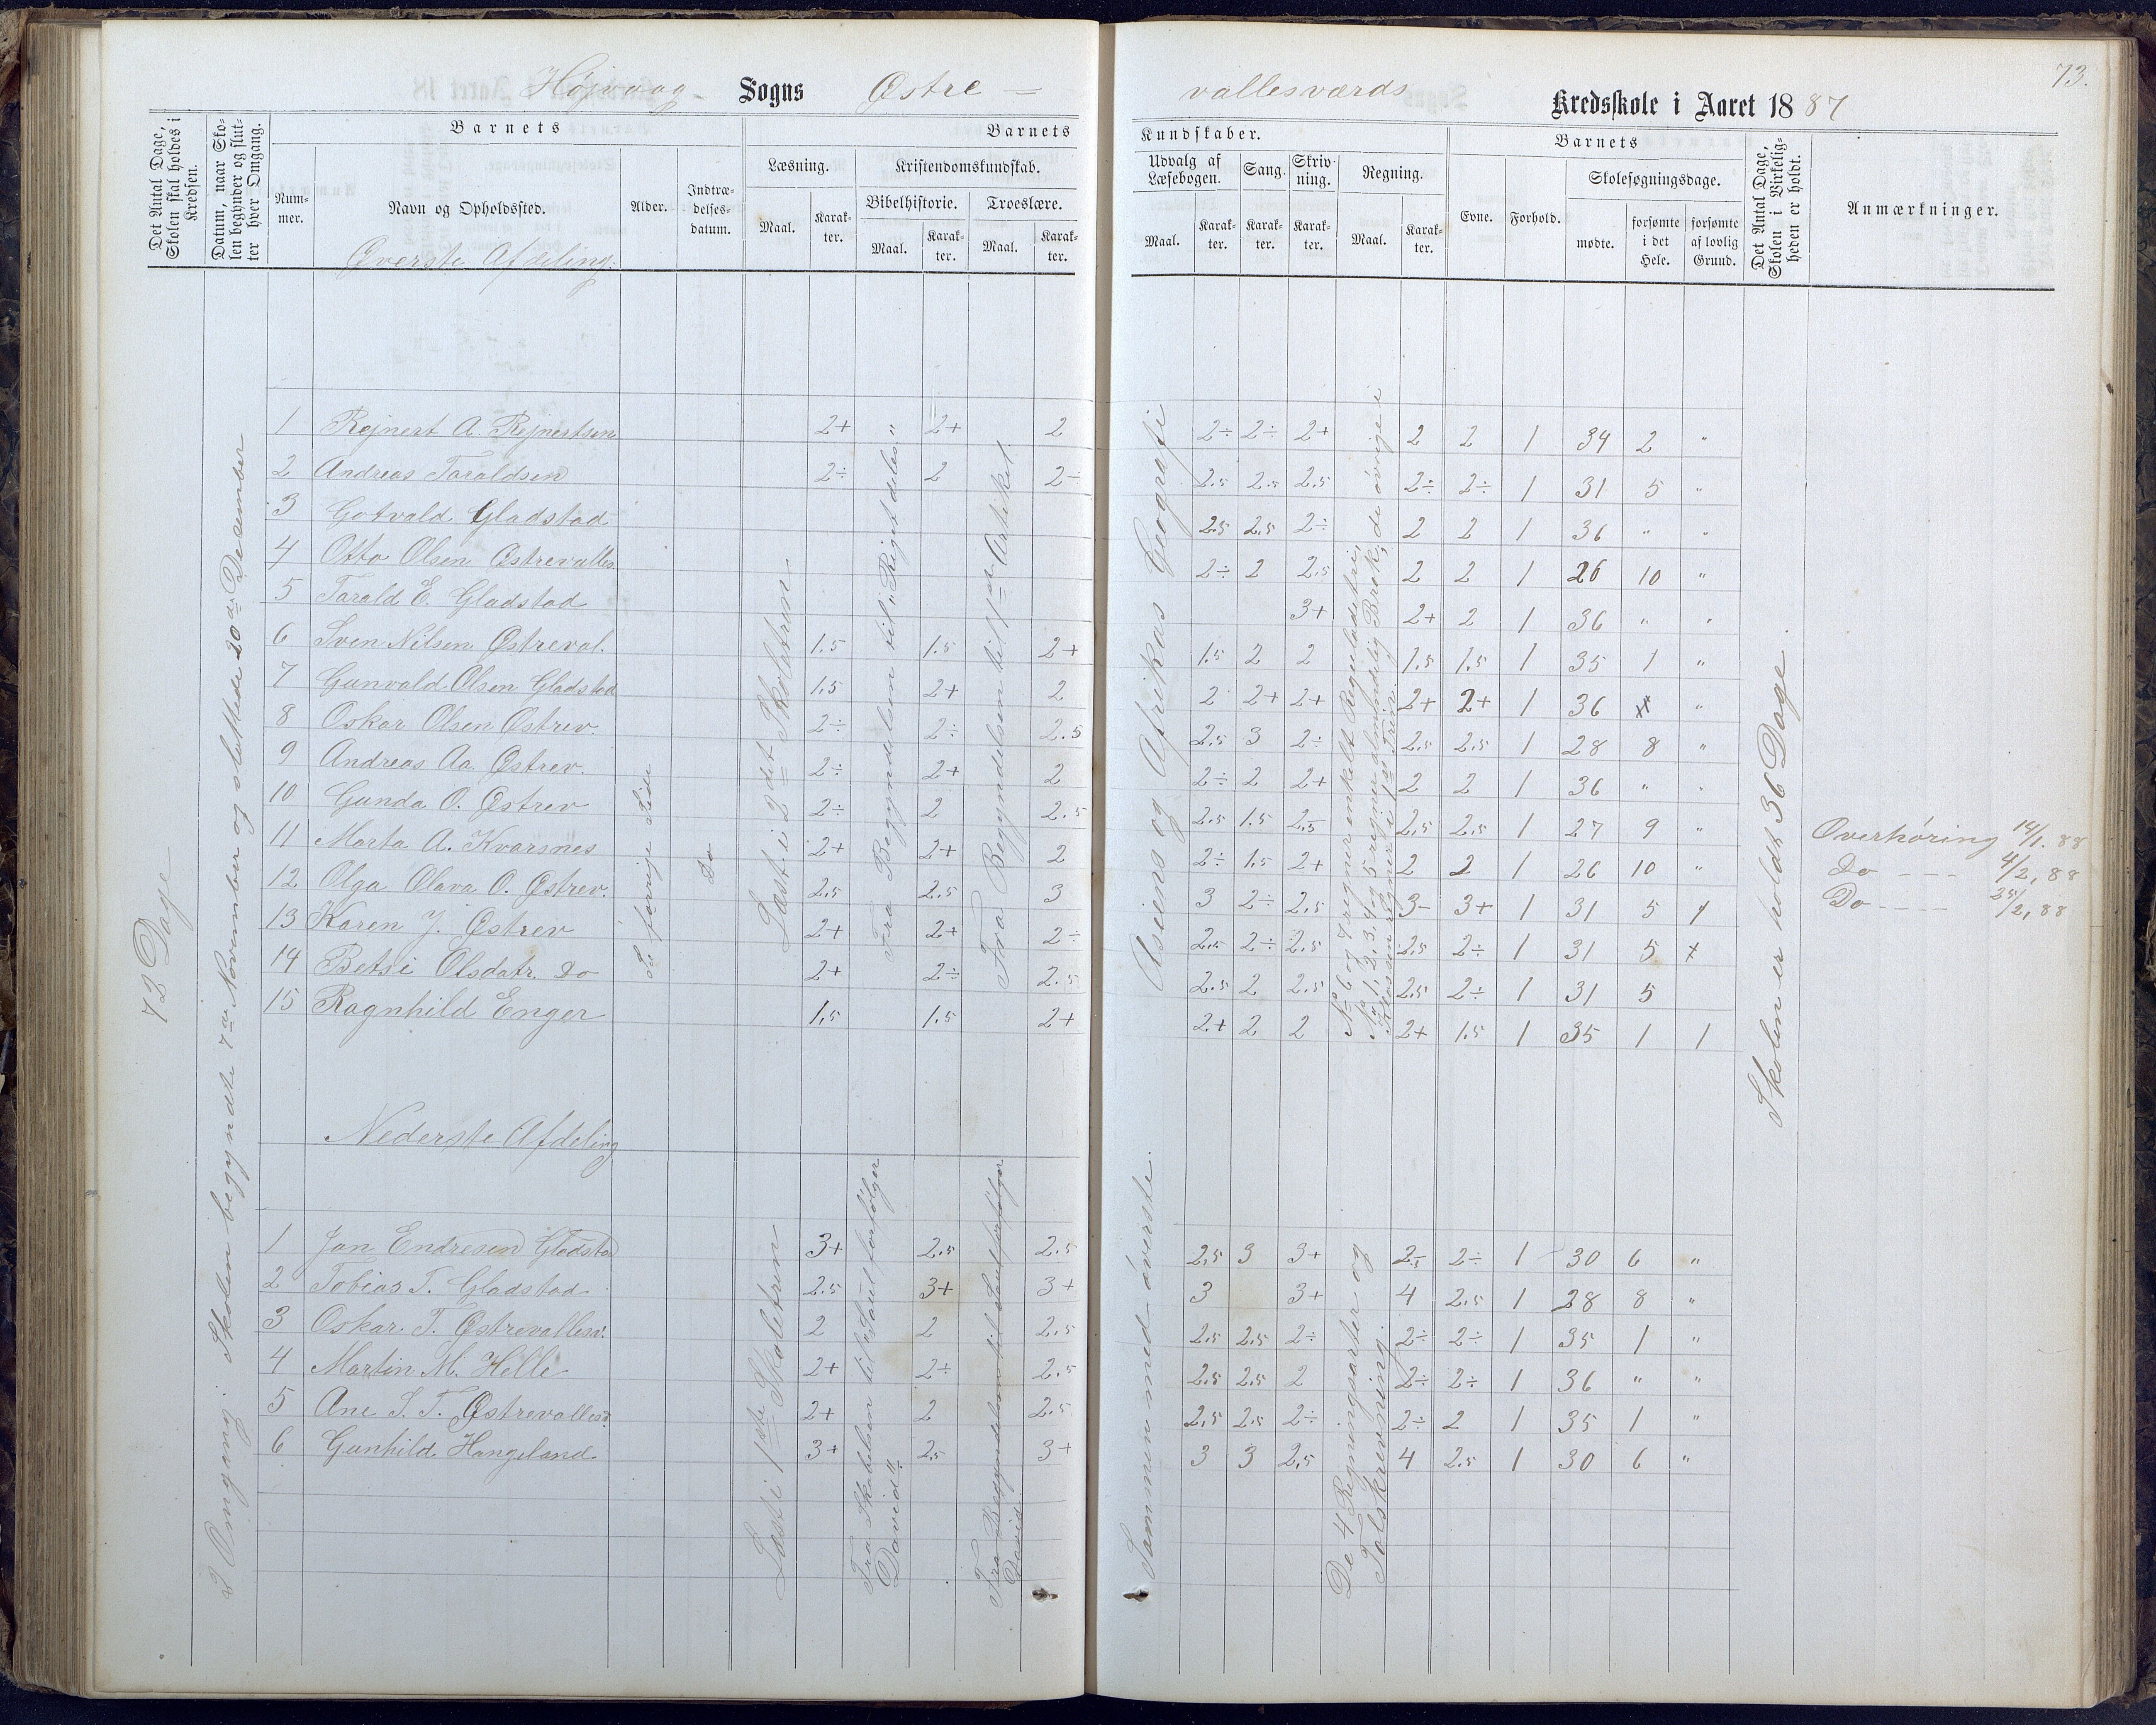 73.
Højvaag Sogns Østre – vallesværds Kredsskole i Aaret 1887
Det Antal Dage, Skolen skal holdes i Kredsen.
Datum, naar Skolen begynder og slutter hver Omgang.
Barnets
Nummer.
Navn og Opholdssted.
Alder.
Indtrædelsesdatum.
Barnets Kundskaber.
Læsning.
Maal.
Karakter.
Kristendomskundskab.
Bibelhistorie.
Maal.
Karakter.
Troeslære.
Maal.
Karakter.
Udvalg af Læsebogen.
Maal.
Karakter.
Sang.
Karakter.
Skrivning.
Karakter.
Regning.
Maal.
Karakter.
Barnets
Evne.
Forhold.
Skolesøgningsdage.
mødte.
forsømte i det Hele.
forsømte af lovlig Grund.
Det Antal Dage, Skolen i Virkeligheden er holdt.
Anmærkninger.
Øverste Afdeling.
72 Dage
2 Omgang: Skolen begyndte 7de November og sluttede 20de December
Se forrige Side
Do
Læst i 2det Skoletrin
Fra Begyndelsen til "Riget deles"
Fra Begyndelsen til 1ste Artikel.
Asiens og Afrikas Geografi
No 6 og 7 regner enkelt Reguladetri,
No 1, 2, 3, 4 og 5 regner almindelig Brøk, de øvrige i
Klassen regner i 1ste Trin.
Skolen er holdt 36 Dage.
1 Rejnert A. Rejnertsen 2+ 2+ 2 2÷ 2÷ 2+ 2 2 1 34 2 "
2 Andreas Taraldsen 2÷ 2 2÷ 2.5 2.5 2.5 2÷ 2÷ 1 31 5 "
3 Gotvald Gladstad 2.5 2.5 2÷ 2 2 1 36 " "
4 Otto Olsen Østrevalles. 2÷ 2 2.5 2 2 1 26 10 "
5 Tarald E. Gladstad 3+ 2+ 2 1 36 " "
6 Sven Nilsen Østreval. 1.5 1.5 2+ 1.5 2 2 1.5 1.5 1 35 1 "
7 Gunvald Olsen Gladstad 1.5 2+ 2 2 2+ 2+ 2+ 2+ 1 36 "
8 Oskar Olsen Østrev. 2÷ 2÷ 2.5 2.5 3 2÷ 2.5 2.5 1 28 8 "
9 Andreas Aa. Østrev. 2÷ 2+ 2 2÷ 2 2+ 2 2 1 36 " "
10 Gunda O. Østrev 2÷ 2 2.5 2.5 1.5 2.5 2.5 2.5 1 27 9 "
11 Marta A. Kvarsnes 2+ 2+ 2 2÷ 1.5 2+ 2 2 1 26 10 "
12 Olga Olava O. Østrev. 2.5 2.5 3 3 2÷ 2.5 3- 3+ 1 31 5
13 Karen J. Østrev 2+ 2+ 2÷ 2.5 2÷ 2.5 2.5 2÷ 1 31 5
14 Betsi Olsdatr. Do 2+ 2÷ 2.5 2.5 2 2.5 2.5 2÷ 1 31 5
15 Ragnhild Enger 1.5 1.5 2+ 2+ 2 2 2+ 1.5 1 35 1 1
Overhøring 14/1. 88
Do – – – 4/2, 88
Do – – – – 25/2, 88
Nederste Afdeling
Læst i 1ste Skoletrin
Fra Skabelsen til "Saul forfølger
David"
Fra Begyndelsen til Saul forfølger
David
Sammen med øverste.
De 4 Regningsarter og
Talskrevning.
1 Jan Endresen Gladstad 3+ 2.5 2.5 2.5 3 3+ 2.5 2÷ 1 30 6 "
2 Tobias T. Gladstad 2.5 3+ 3+ 3 3+ 4 2.5 1 28 8 "
3 Oskar T. Østrevallesv. 2 2 2.5 2.5 2.5 2÷ 2÷ 2÷ 1 35 1 "
4 Martin M. Helle 2+ 2÷ 2.5 2.5 2.5 2 2÷ 2÷ 1 36 " "
5 Ane S. T. Østrevallesv. 2+ 2 2.5 2.5 2.5 2÷ 2÷ 2 1 35 1 "
6 Gunhild Hangeland 3+ 2.5 3+ 3 3 2.5 4 2.5 1 30 6 "